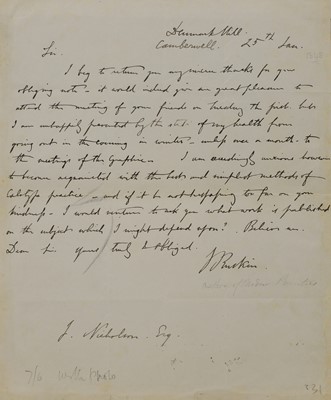 Denmark Hill
Camberwell. 25th Jan.
Sir.
I beg to return you my sincere thanks for your
obliging note - it would indeed give me great pleasure to
attend the meeting of your friends on Tuesday the first but
I am unhappily prevented by the state of my health from
going out in the evening in winter - unless once a month - to
the meetings of the Graphic - I am exceedingly anxious however
to become acquainted with the best and simplest methods of
Calotype practice - and if it be not trespassing too far on your
kindness - I would venture to ask you what work is published
on the subject which I might depend upon? Believe me.
Dear Sir. Yours truly & obliged.
J Ruskin.
J. Nicholson. Esq.
7/6